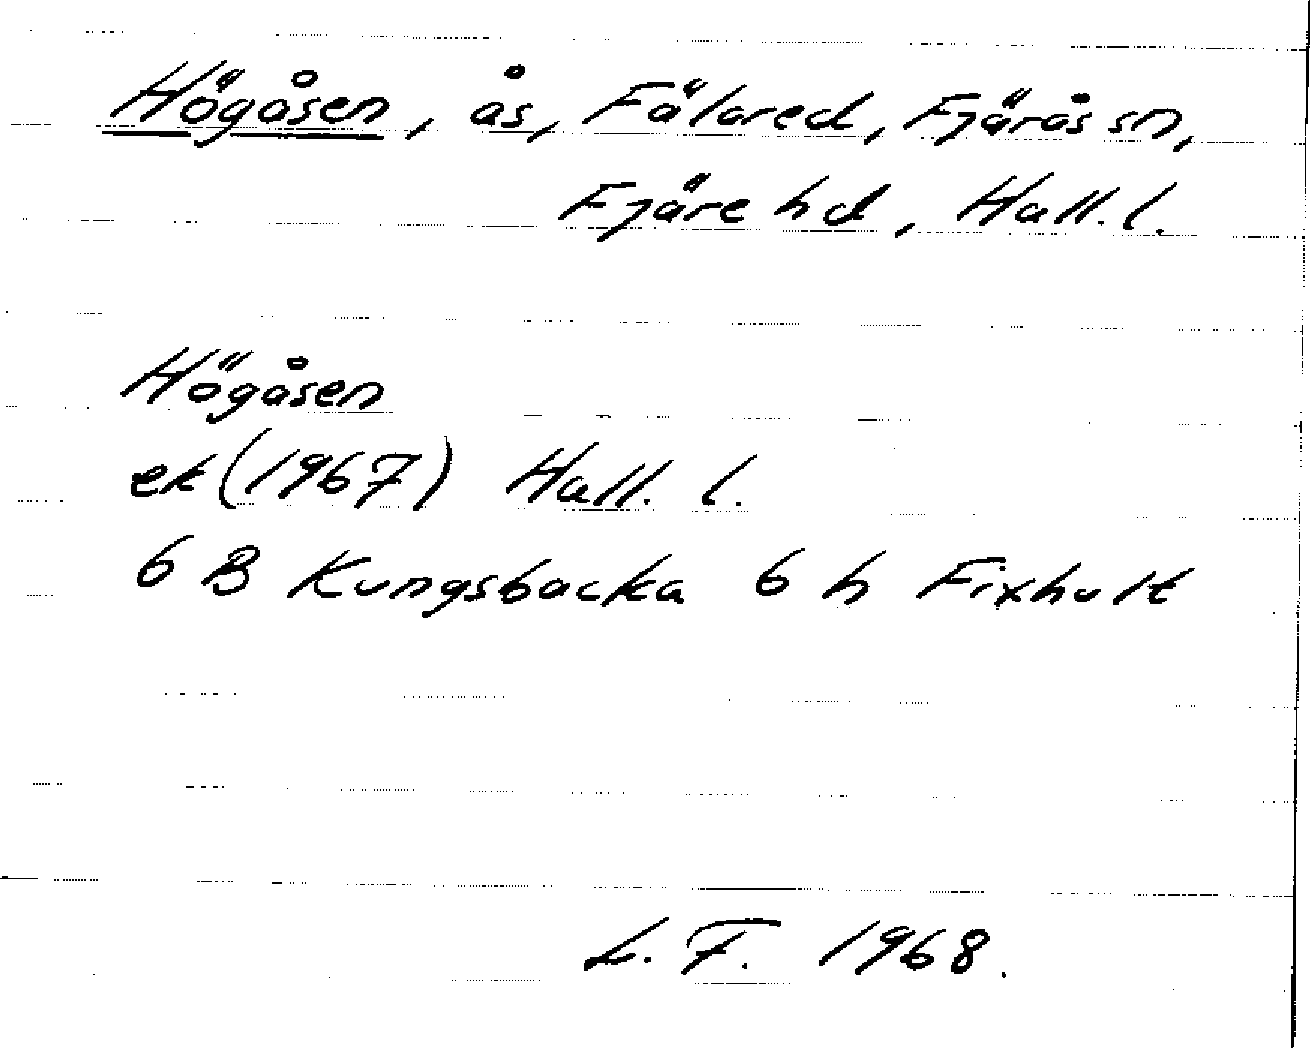 Högåsen, ås, Fälared, Fjärås sn,
Fjäre hd, Hall. l.
Högåsen
ek (1967) Hall. l.
6 B Kungsbacka 6 h Fixhult
L. F. 1968.